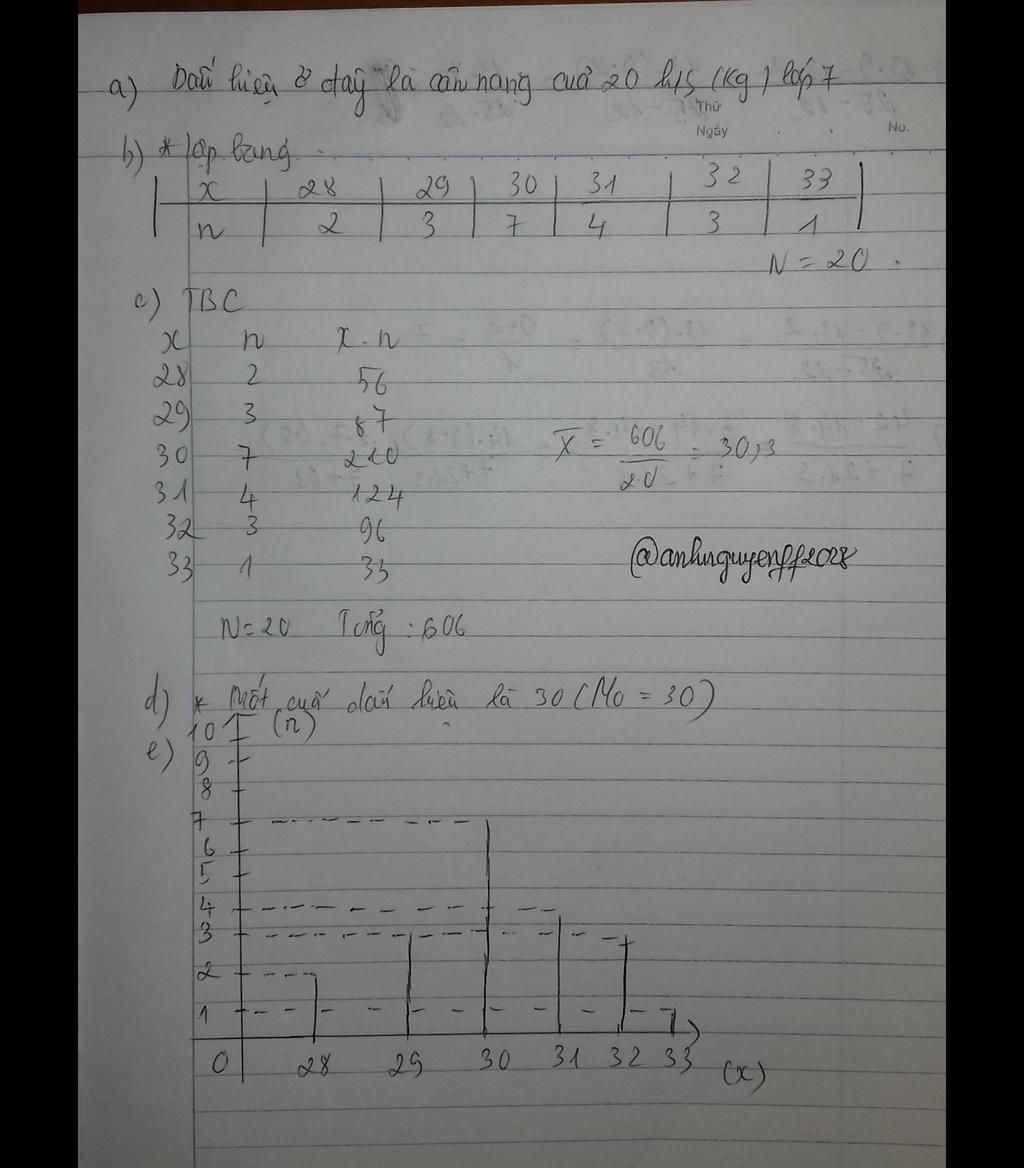 a) Dấu hiệu ở đây là cân nặng của 20 h/s (kg) lớp 7
Thứ
Ngày
No.
b) * lập bảng
x 28 29 30 31 32 33
n 2 3 7 4 3 1
N = 20
c) TBC
x n x . n
28 2 56
29 3 87
30 7 210
31 4 124
32 3 96
33 1 33
X̄ = 606/20 = 30,3
@anhnguyenff2028
N = 20 Tổng : 606
d) * Mốt của dấu hiệu là 30 (Mo = 30)
e)
(n)
10
9
8
7
6
5
4
3
2
1
0 28 29 30 31 32 33 (x)